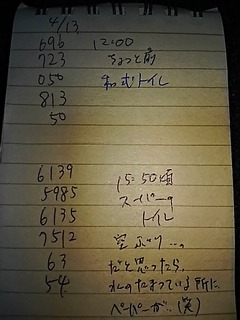 4/13
696 12:00
723 ちょっと前
050 和式トイレ
813
50
6139 15:50頃
5985 スーパーの
6135 トイレ
7512 空ぶり…。
63 だと思ったら、
54 水のたまっている所に、
ペーパーが…(笑)